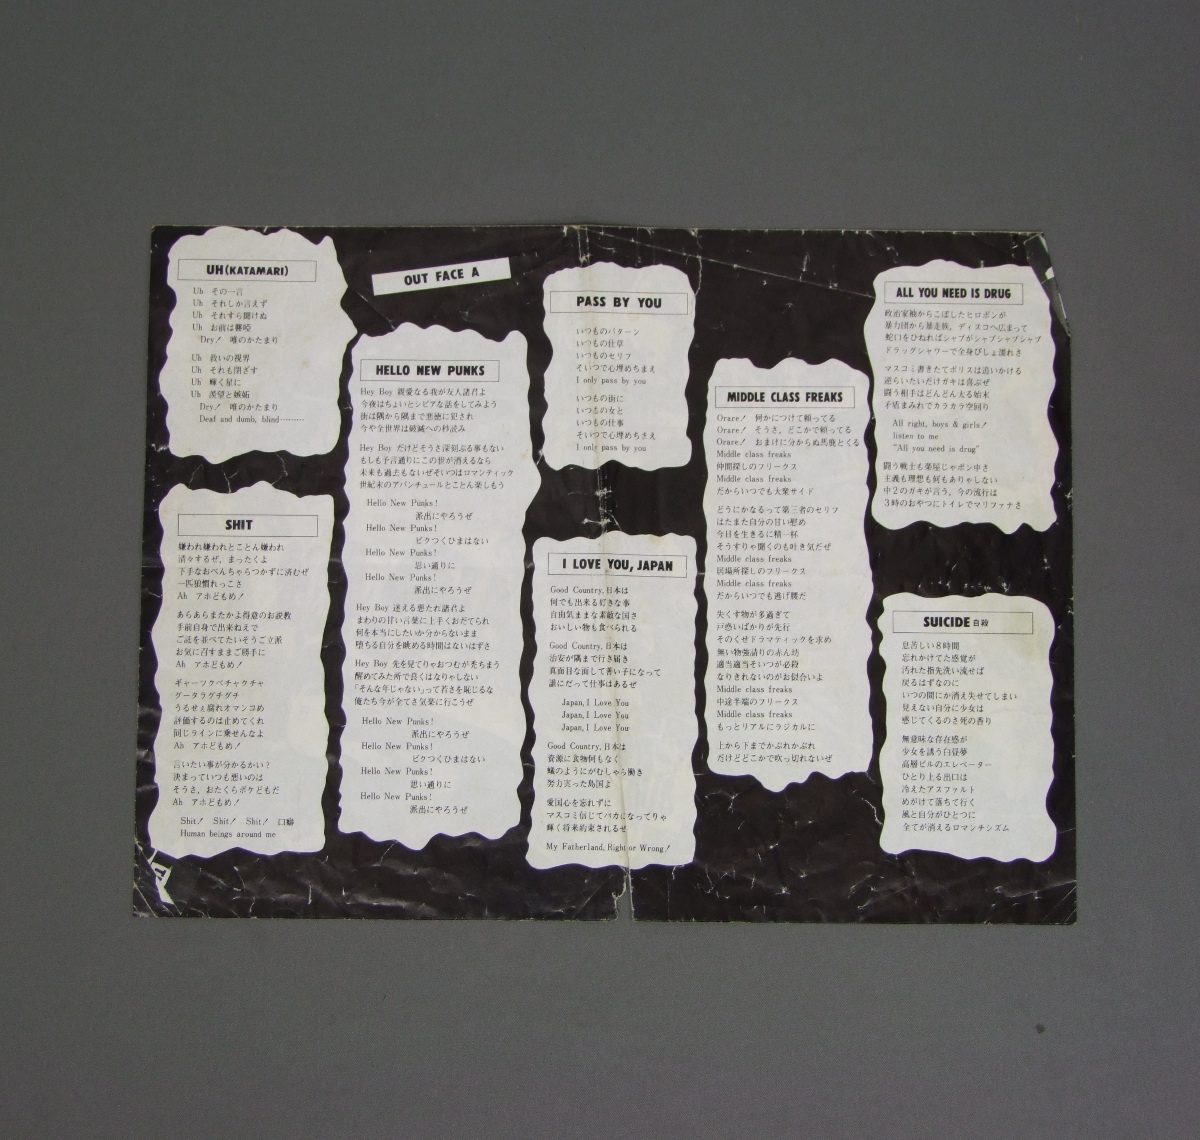 OUT FACE A
UH(KATAMARI)
Uh その一言
Uh それしか言えず
Uh それすら聞けぬ
Uh お前は聾唖
Dry! 唯のかたまり
Uh 救いの視界
Uh それも閉ざす
Uh 輝く星に
Uh 羨望と嫉妬
Dry! 唯のかたまり
Deaf and dumb, blind………
SHIT
嫌われ嫌われとことん嫌われ
清々するぜ、まったくよ
下手なおべんちゃらつかずに済むぜ
一匹狼慣れっこさ
Ah アホどもめ!
あらあらまたかよ得意のお説教
手前自身で出来ねえで
ご託を並べてたいそうご立派
お気に召すままご勝手に
Ah アホどもめ!
ギャーツクペチャクチャ
グータラグチグチ
うるせぇ腐れオマンコめ
評価するのは止めてくれ
同じラインに乗せんなよ
Ah アホどもめ!
言いたい事が分かるかい?
決まっていつも想いのは
そうさ、おたくらボケどもだ
Ah アホどもめ!
Shit! Shit! Shit! 口癖
Human beings around me
HELLO NEW PUNKS
Hey Boy 親愛なる我が友人諸君よ
今夜はちょいとシビアな話をしてみよう
街は隅から隅まで悪徳に犯され
今や全世界は破滅への秒読み
Hey Boy だけどそうさ深刻ぶる事もない
もしも予言通りにこの世が消えるなら
未来も過去もないぜそいつはロマンティック
世紀末のアバンチュールとことん楽しもう
Hello New Punks!
派出にやろうぜ
Hello New Punks!
ビクつくひまはない
Hello New Punks!
思い通りに
Hello New Punks!
派出にやろうぜ
Hey Boy 迷える悲たれ諸君よ
まわりの甘い言葉に上手くおだてられ
何を本当にしたいか分からないまま
堕ちる自分を眺める時間はないはずさ
Hey Boy 先を見てりゃおつむが禿ちまう
醒めてみた所で良くはなりゃしない
「そんな年じゃない」って若さを恥じるな
俺たち今が全てさ気楽に行こうぜ
Hello New Punks!
派出にやろうぜ
Hello New Punks!
ビクつくひまはない
Hello New Punks!
思い通りに
Hello New Punks!
派出にやろうぜ
PASS BY YOU
いつものパターン
いつもの仕草
いつものセリフ
そいつで心埋めちまえ
I only pass by you
いつもの街に
いつもの女と
いつもの仕事
そいつで心埋めちまえ
I only pass by you
I LOVE YOU, JAPAN
Good Country, 日本は
何でも出来る好きな事
自由気ままな素敵な国さ
おいしい物も食べられる
Good Country, 日本は
治安が隅まで行き届き
真面目な面して善い子になって
誰にだって仕事はあるぜ
Japan, I Love You
Japan, I Love You
Japan, I Love You
Good Country, 日本は
資源に食物何もなく
蟻のようにがむしゃら働き
努力実った島国よ
愛国心を忘れずに
マスコミ信じてバカになってりゃ
輝く将来約束されるぜ
My Fatherland, Right or Wrong!
MIDDLE CLASS FREAKS
Orare! 何かにつけて頼ってる
Orare! そうさ、どこかで頼ってる
Orare! おまけに分からぬ馬鹿とくる
Middle class freaks
仲間探しのフリークス
Middle class freaks
だからいつでも大衆サイド
どうにかなるって第三者のセリフ
はたまた自分の甘い慰め
今日を生きるに精一杯
そうすりゃ聞くのも吐き気だぜ
Middle class freaks
居場所探しのフリークス
Middle class freaks
だからいつでも逃げ腰だ
失くす物が多過ぎて
戸惑いばかりが先行
そのくせドラマティックを求め
無い物強請りの赤ん坊
適当適当そいつが必殺
なりきれないのがお似合いよ
Middle class freaks
中途半端のフリークス
Middle class freaks
もっとリアルにラジカルに
上から下までかぶれかぶれ
だけどどこかで吹っ切れないぜ
ALL YOU NEED IS DRUG
政治家袖からこぼしたヒロポンが
暴力団から暴走族、ディスコへ広まって
蛇口をひねればシャブがシャブシャブシャブ
ドラッグシャワーで全身びしょ濡れさ
マスコミ書きたてポリスは追いかける
逆らいたいだけガキは喜ぶぜ
闘う相手はどんどん太る始末
矛盾まみれでカラカラ空回り
All right, boys & girls!
listen to me
"All you need is drug"
闘う戦士も楽屋じゃポン中さ
主義も理想も何もありゃしない
中2のガキが言う、今の流行は
3時のおやつにトイレでマリファナさ
SUICIDE 自殺
息苦しい8時間
忘れかけてた感覚が
汚れた指先洗い流せば
戻るはずなのに
いつの間にか消え失せてしまい
見えない自分に少女は
感じてくるのさ死の香り
無意味な存在感が
少女を誘う白昼夢
高層ビルのエレベーター
ひとり上る出口は
冷えたアスファルト
めがけて落ちて行く
風と自分がひとつに
全てが消えるロマンチシズム